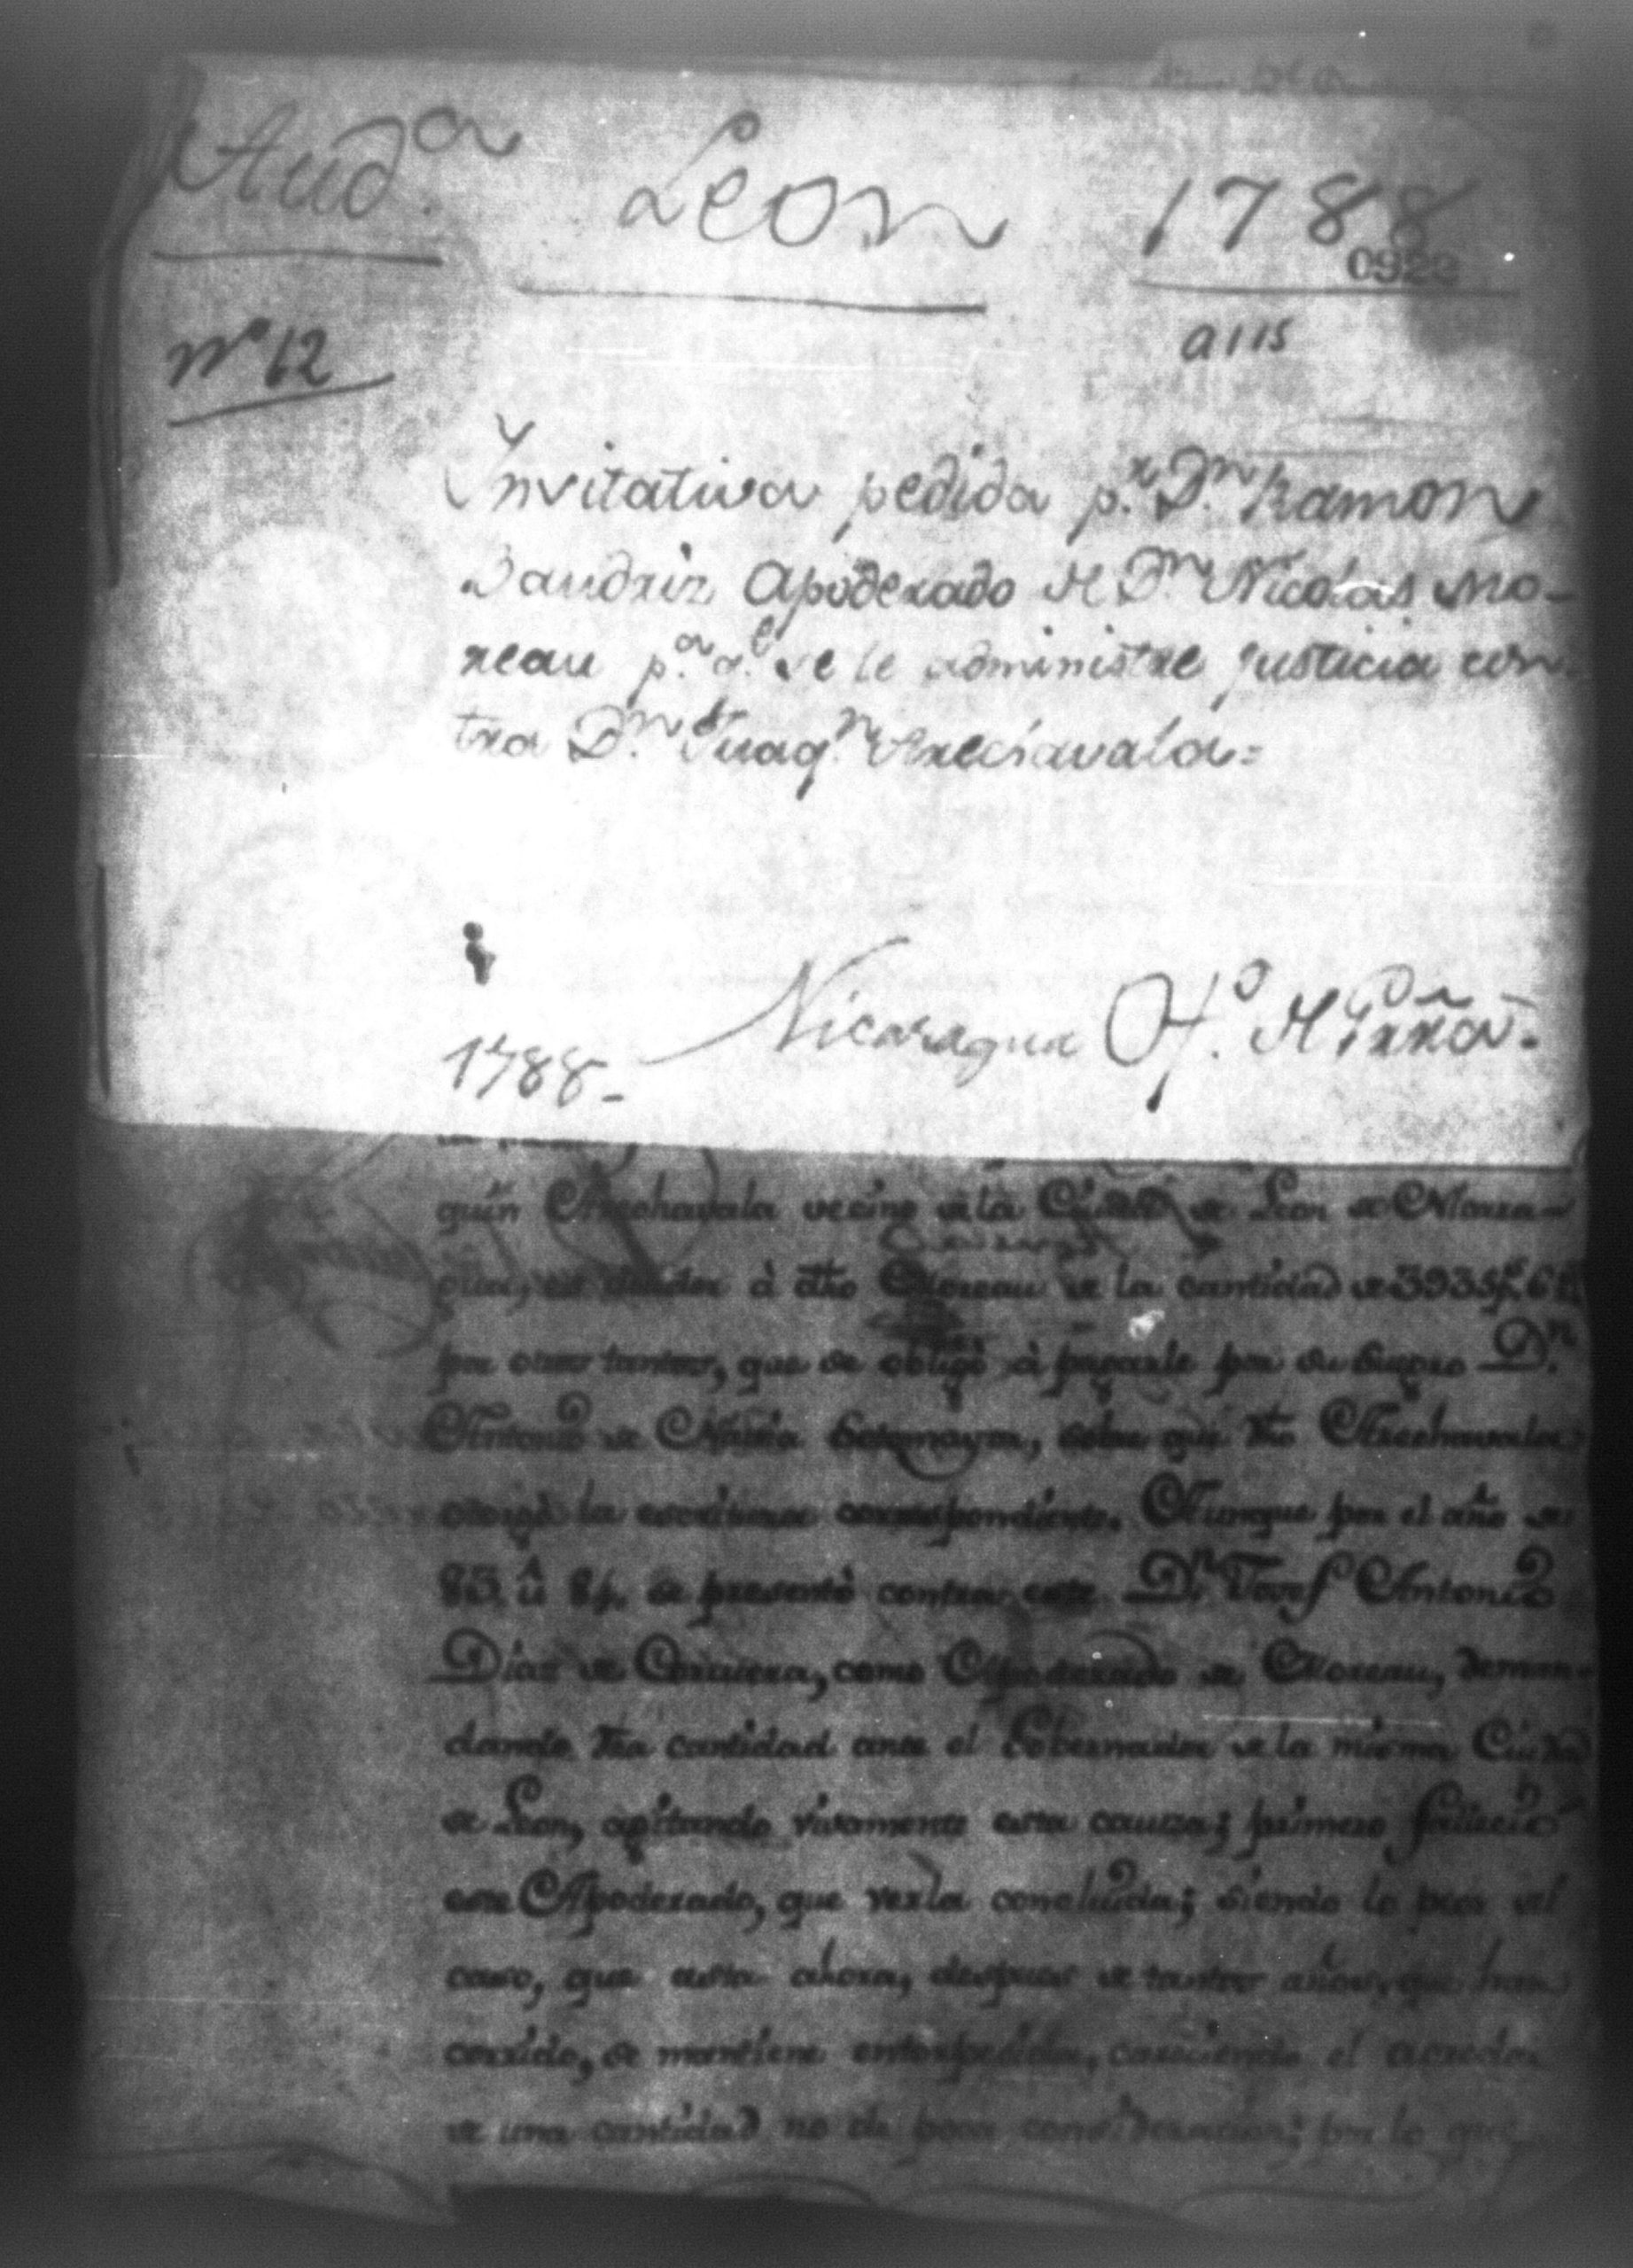 Aud.a Leon 1788
0923
no 12
a115
Invitativa pedida p.r D.n Ramon
Dandriz Apoderado de D.n Nicolas Mo-
reau p.a q.e se le administre justicia con-
tra D.n Juaq.n Arechavala=
1788- Nicaragua
quin Arechavala vecino de la Ciudad de Leon de Nicara-
gua, es deudor à dho Moreau de la cantidad de 3935 p.s 6
por otros tantos, que se obligò à pagarle por su Suegro D.n
Antonio de Navia Bolaños, sobre que dho Arechavala
otorgò la escritura correspondiente. Aunque por el año de
83 û 84 se presentò contra este D.n Josef Antonio
Dias de Corriera, como Apoderado de Moreau, deman-
dando dha cantidad ante el Gobernador de la misma Ciudad
de Leon, agitando vivamente esta causa; primero falleciò
este Apoderado, que verla concluida; siendo lo peor del
caso, que asta ahora, despues de tantos años, que han
corrido, se mantiene entorpecida, careciendo el acredor
de una cantidad no de poca consideracion; por lo que